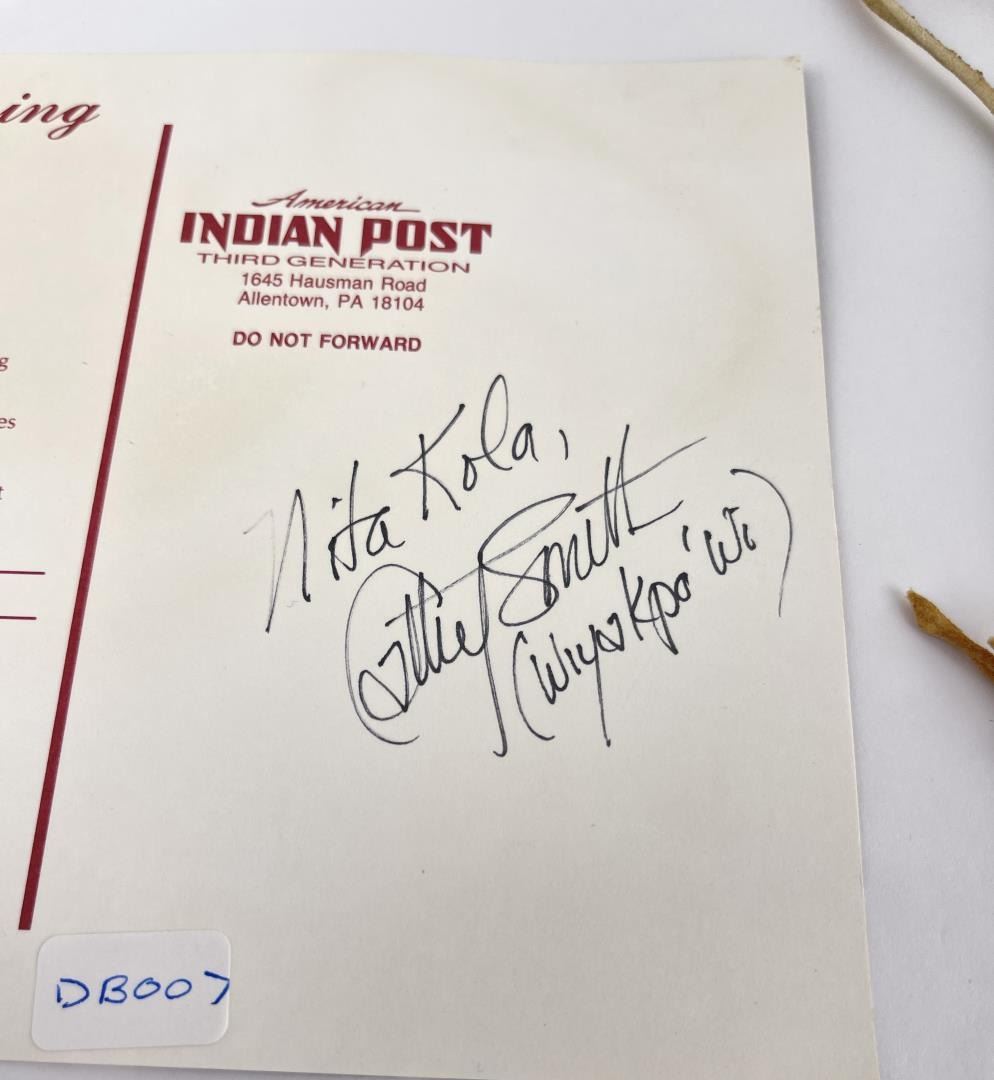 ing
American
INDIAN POST
THIRD GENERATION
1645 Hausman Road
Allentown, PA 18104
DO NOT FORWARD
g
es
t
Nita Kola,
Cathy Smith
DB007